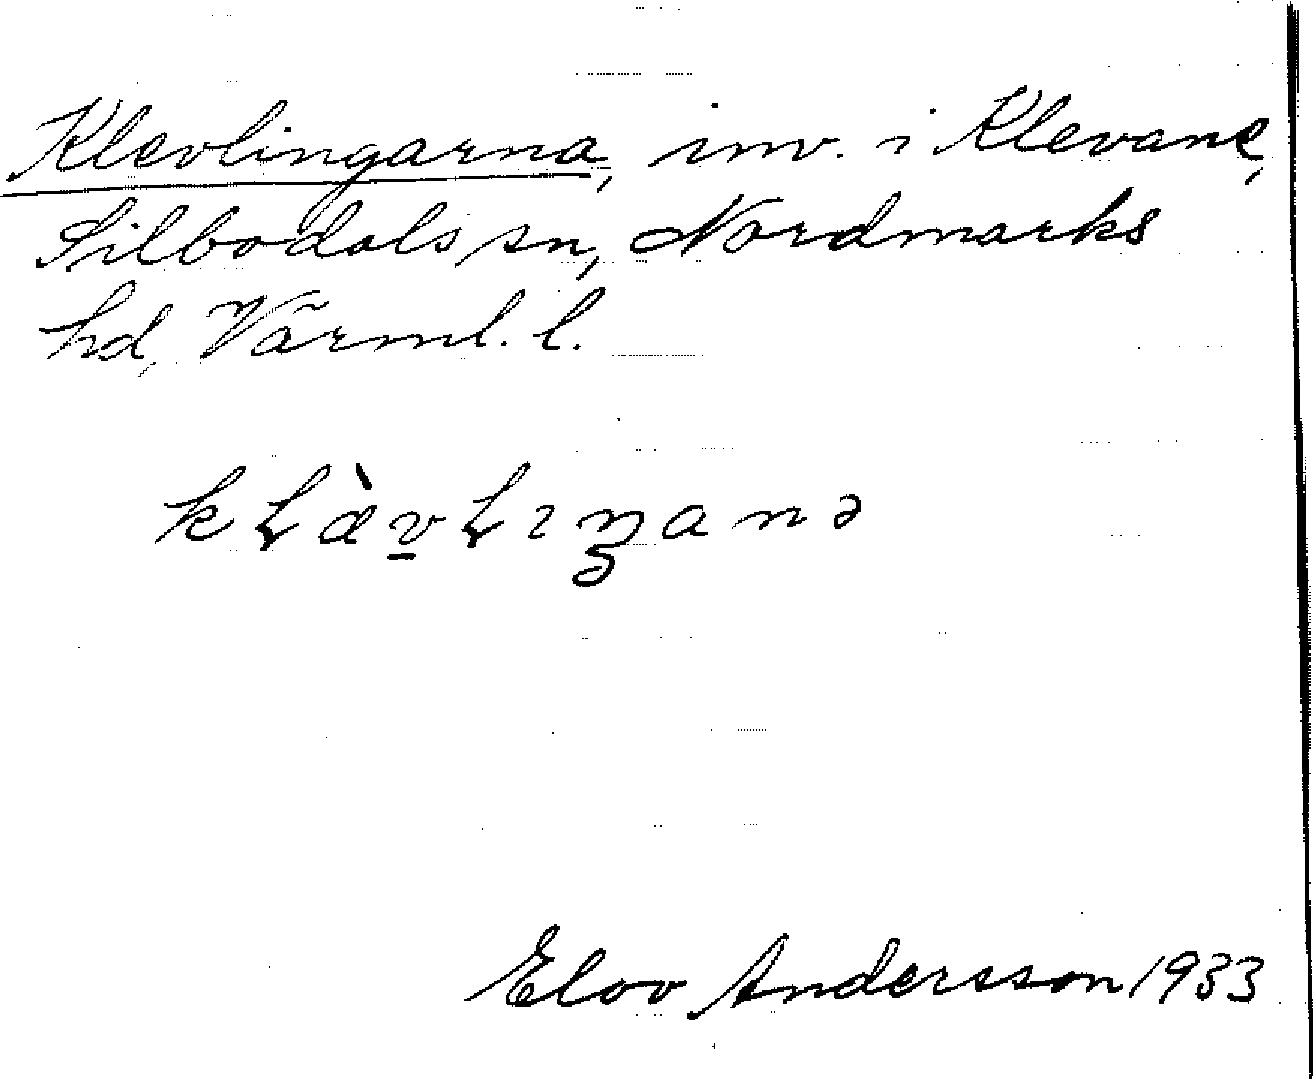 Klevlingarna, inv. i Klevane,
Silbodals sn, Nordmarks
hd, Värml. l.
Elov Andersson 1933